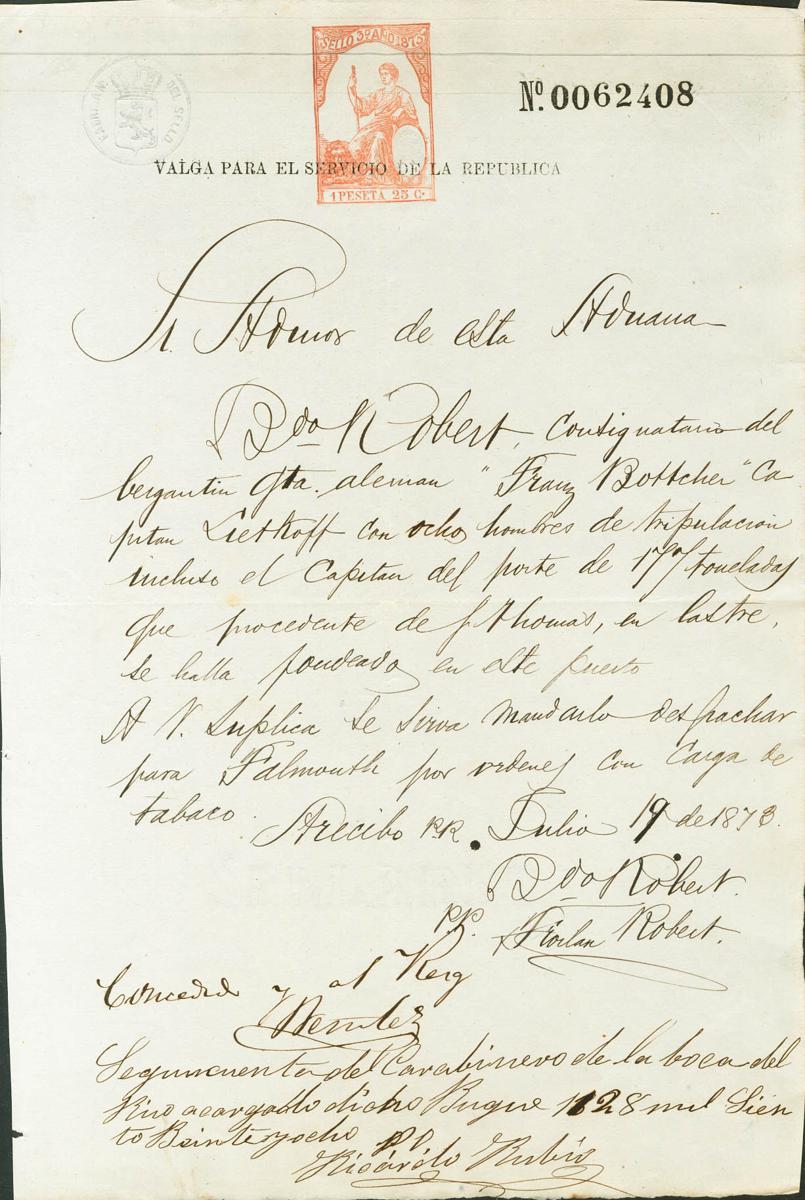 SELLO 3º AÑO 1873
FABRICA NAL. DEL SELLO
Nº. 0062408
VALGA PARA EL SERVICIO DE LA REPUBLICA
1 PESETA 25 C.
Sr. Admor de esta Aduana
Bdo Robert, Consignatario del
bergantin Gta. aleman "Franz Bottcher" Ca
pitan Lietkoff con ocho hombres de tripulacion
incluso el Capitan del porte de toneladas
que procedente de St Thomas, en lastre,
se halla fondeado en este puerto
A V. Suplica se sirva mandarlo despachar
para Falmouth por ordenes con Carga de
tabaco.
Arecibo PR. Julio 19 de 1873.
Bdo Robert.
pp. Froilan Robert.
Concedido y al
Benitez
Segun cuenta del Carabinero de la boca del
Rio a cargado dicho Buque 1128 mil Sien
to Beinte y ocho
Ricardo Rubio